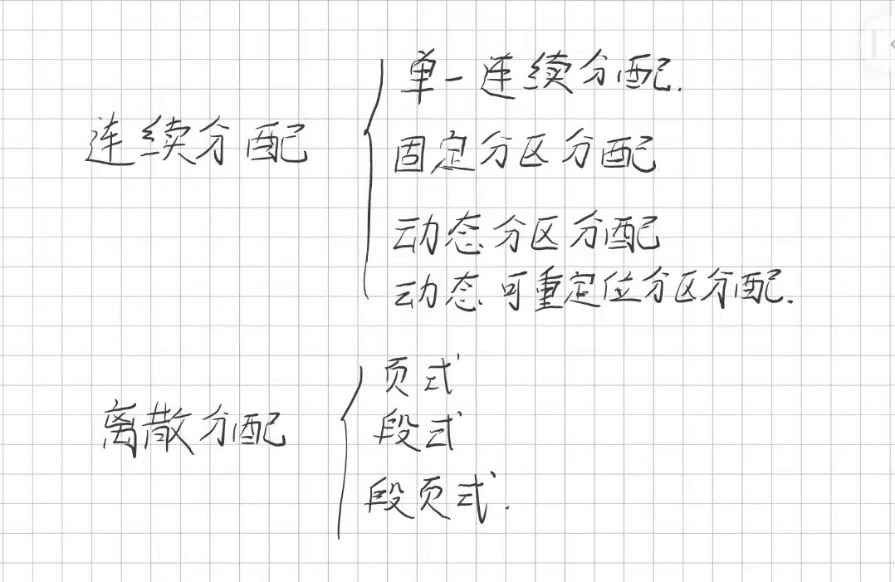 连续分配
单一连续分配.
固定分区分配
动态分区分配
动态可重定位分区分配.
离散分配
页式
段式
段页式.